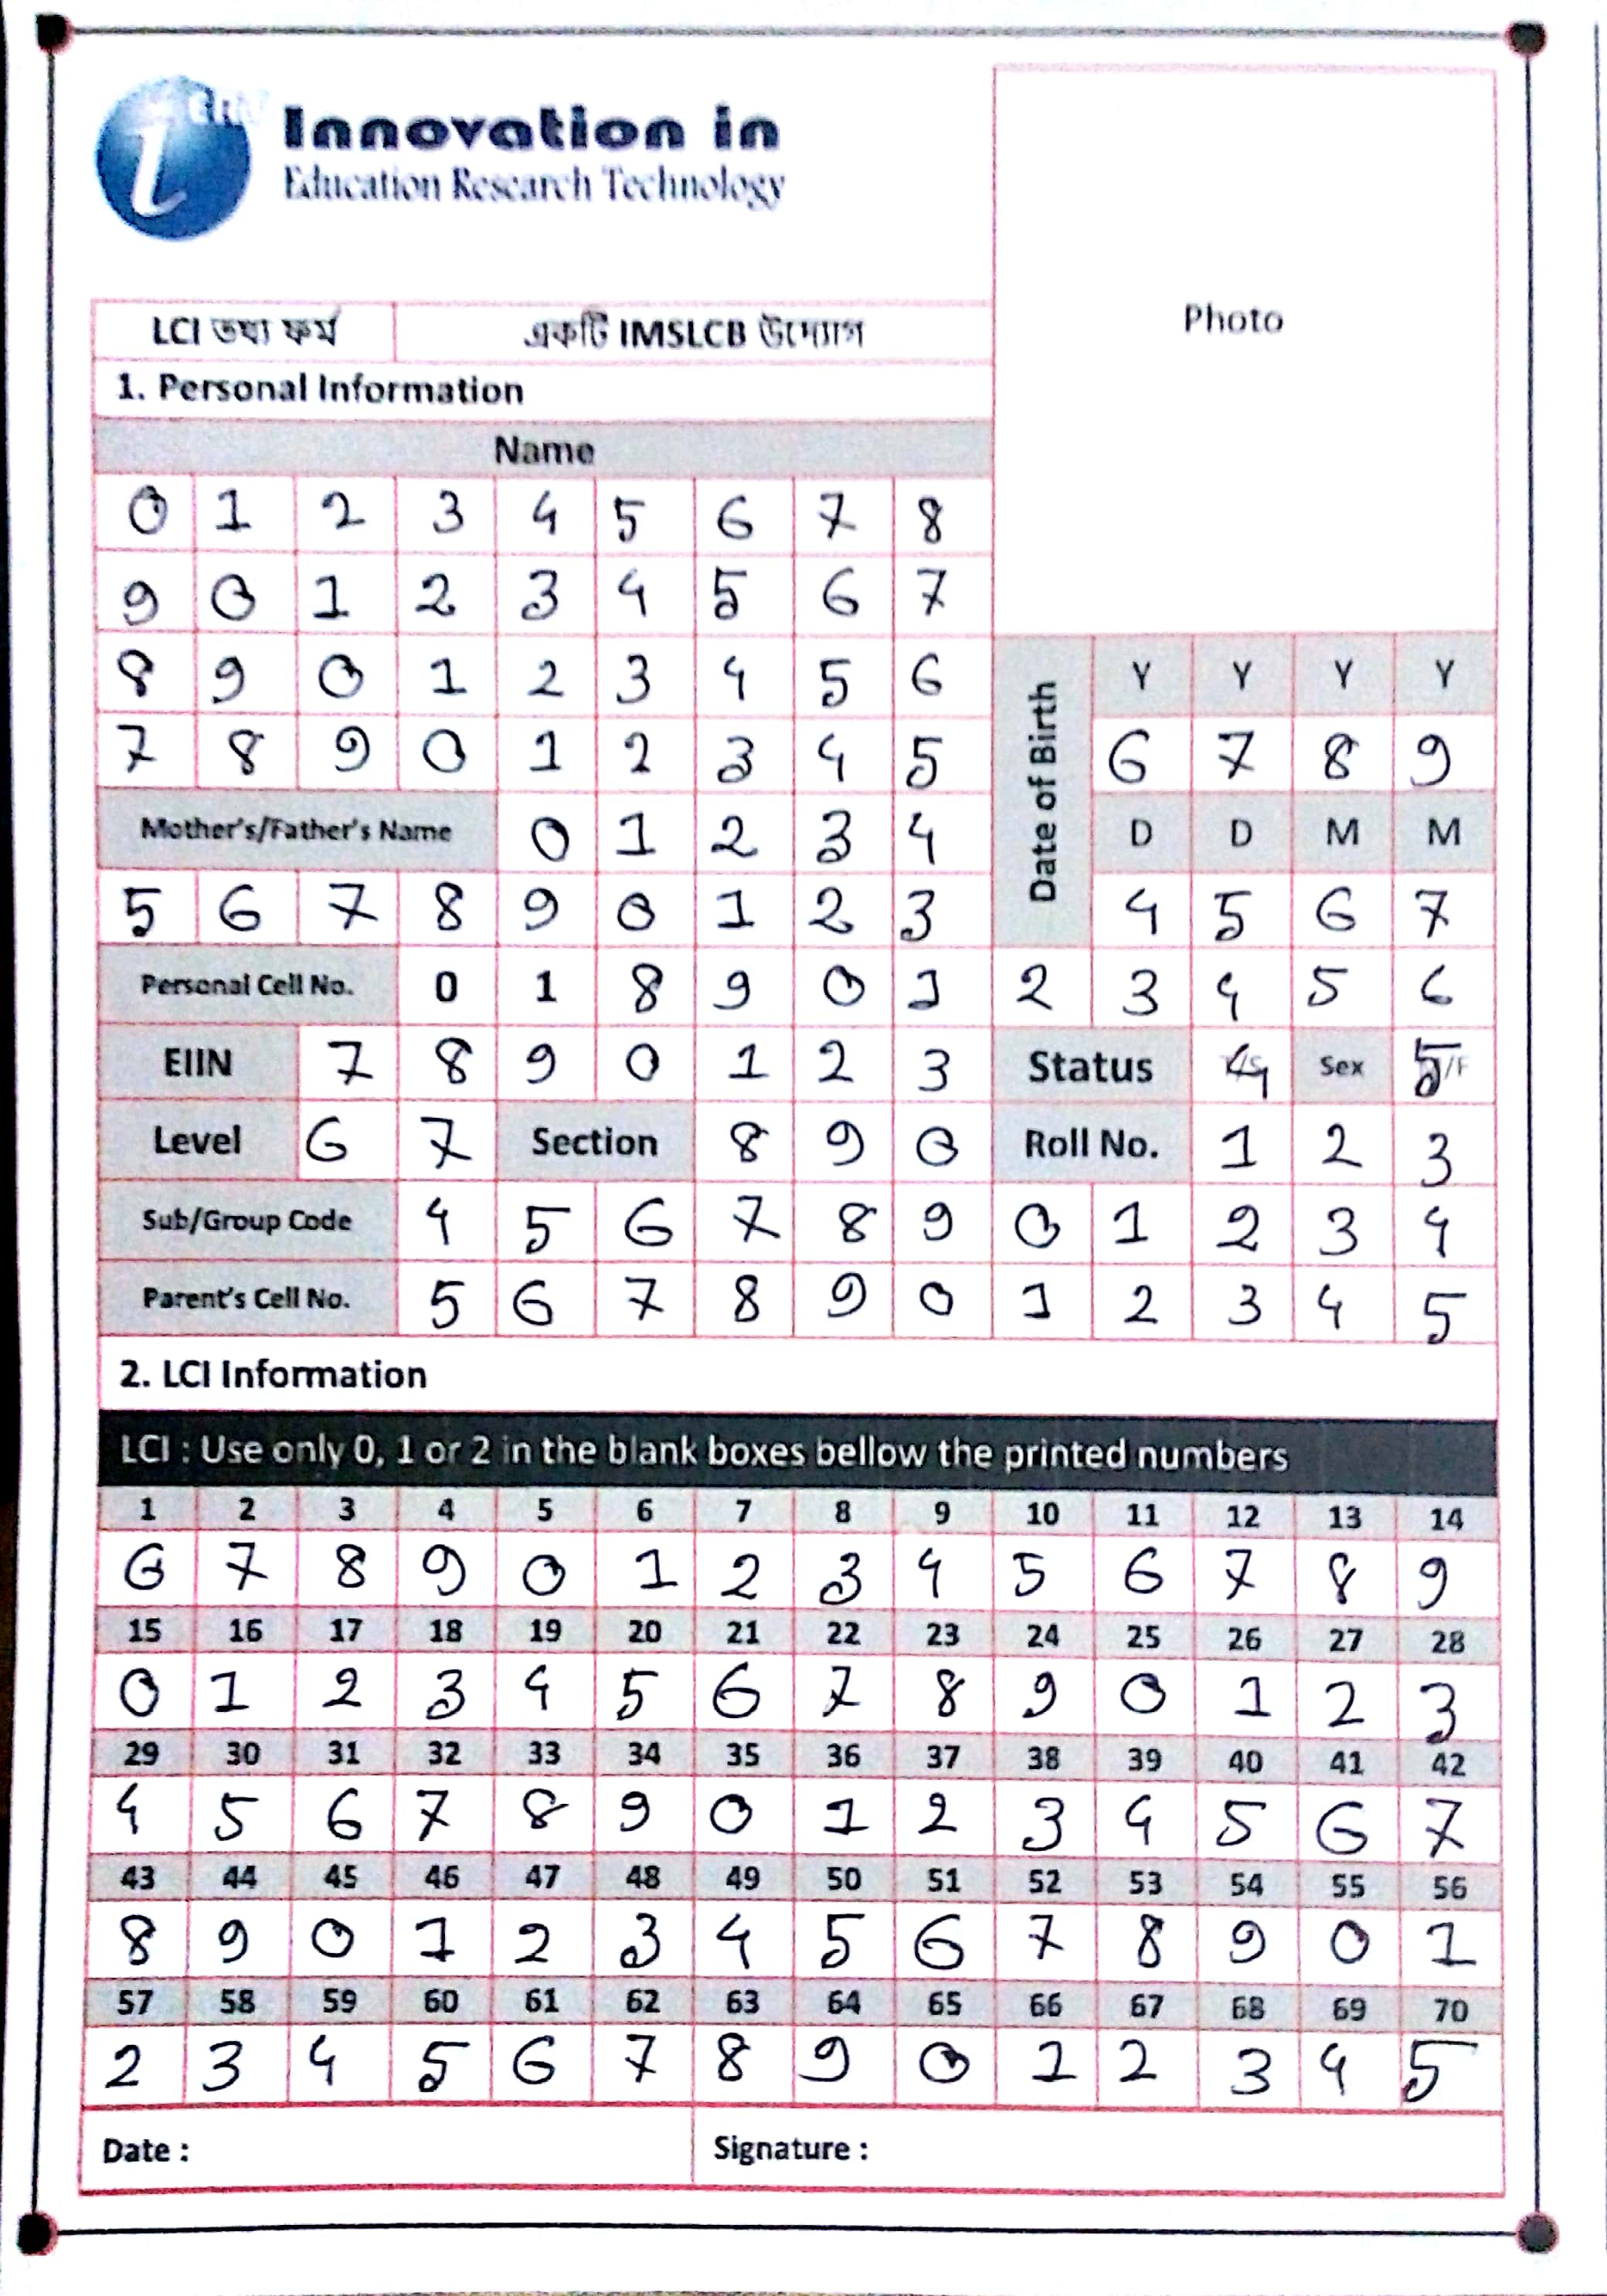 Innovation in
Education Research Technology
Photo
LCI তথ্য ফর্ম একটি IMSLCB উদ্যোগ
1. Personal Information
Name
0 1 2 3 4 5 6 7 8
9 0 1 2 3 4 5 6 7
8 9 0 1 2 3 4 5 6 Date of Birth Y Y Y Y
7 8 9 0 1 2 3 4 5 6 7 8 9
Mother's/Father's Name 0 1 2 3 4 D D M M
5 6 7 8 9 0 1 2 3 4 5 6 7
Personal Cell No. 0 1 8 9 0 1 2 3 4 5 6
EIIN 7 8 9 0 1 2 3 Status 4 Sex 5/F
Level 6 7 Section 8 9 0 Roll No. 1 2 3
Sub/Group Code 4 5 6 7 8 9 0 1 2 3 4
Parent's Cell No. 5 6 7 8 9 0 1 2 3 4 5
2. LCI Information
LCI : Use only 0, 1 or 2 in the blank boxes bellow the printed numbers
1 2 3 4 5 6 7 8 9 10 11 12 13 14
6 7 8 9 0 1 2 3 4 5 6 7 8 9
15 16 17 18 19 20 21 22 23 24 25 26 27 28
0 1 2 3 4 5 6 7 8 9 0 1 2 3
29 30 31 32 33 34 35 36 37 38 39 40 41 42
4 5 6 7 8 9 0 1 2 3 4 5 6 7
43 44 45 46 47 48 49 50 51 52 53 54 55 56
8 9 0 1 2 3 4 5 6 7 8 9 0 1
57 58 59 60 61 62 63 64 65 66 67 68 69 70
2 3 4 5 6 7 8 9 0 1 2 3 4 5
Date : Signature :